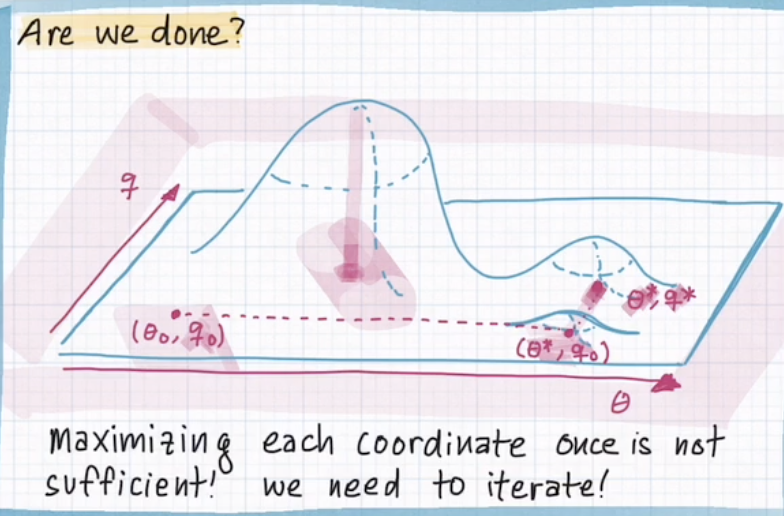 Are we done?
q
θ*, q*
(θ₀, q₀)
(θ*, q₀)
θ
maximizing each coordinate once is not
sufficient! we need to iterate!